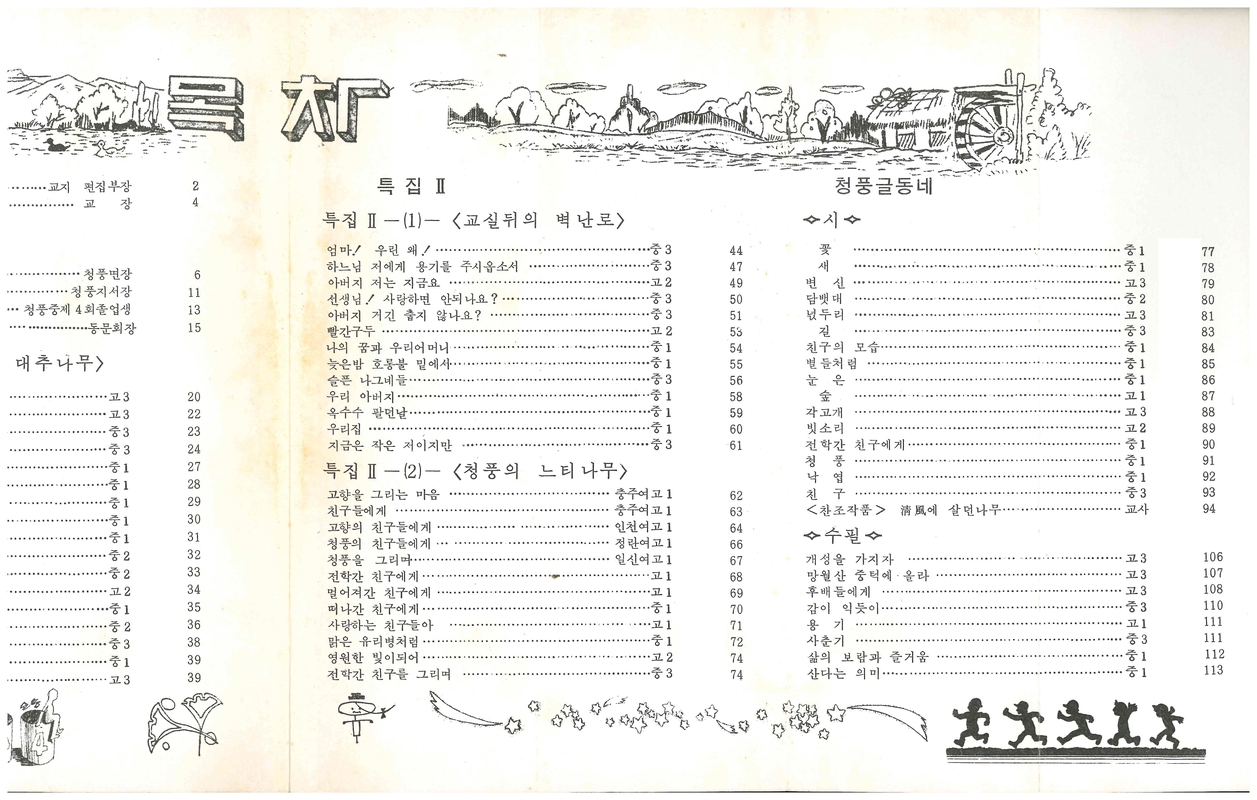 목차
………교지 편집부장 2
………………… 교 장 4
………………… 청풍면장 6
………………… 청풍지서장 11
… 청풍중제 4회졸업생 13
………………… 동문회장 15
대추나무〉
…………………고3 20
…………………고3 22
…………………중3 23
…………………중3 24
…………………중1 27
…………………중1 28
…………………중1 29
…………………중1 30
…………………중1 31
…………………중2 32
…………………중2 33
…………………고2 34
…………………중1 35
…………………중2 36
…………………중3 38
…………………중1 39
…………………고3 39
특집 Ⅱ
특집 Ⅱ―(1)― 〈교실뒤의 벽난로〉
엄마! 우린 왜! …………………중3 44
하느님 저에게 용기를 주시옵소서 …………………중3 47
아버지 저는 지금요 …………………고2 49
선생님! 사랑하면 안되나요? …………………중3 50
아버지 거긴 춥지 않나요? …………………중3 51
빨간구두 …………………고2 53
나의 꿈과 우리어머니 …………………중1 54
늦은밤 호롱불 밑에서 …………………중1 55
슬픈 나그네들 …………………중3 56
우리 아버지 …………………중1 58
옥수수 팔던날 …………………중1 59
우리집 …………………중1 60
지금은 작은 저이지만 …………………중3 61
특집 Ⅱ―(2)― 〈청풍의 느티나무〉
고향을 그리는 마음 …………………충주여고1 62
친구들에게 …………………충주여고1 63
고향의 친구들에게 …………………인천여고1 64
청풍의 친구들에게 …………………정란여고1 66
청풍을 그리며 …………………일신여고1 67
전학간 친구에게 …………………고1 68
멀어져간 친구에게 …………………고1 69
떠나간 친구에게 …………………중1 70
사랑하는 친구들아 …………………고1 71
맑은 유리병처럼 …………………중1 72
영원한 빛이되어 …………………고2 74
전학간 친구를 그리며 …………………중3 74
청풍글동네
◇시◇
꽃 …………………중1 77
새 …………………중1 78
변 신 …………………고3 79
담뱃대 …………………중2 80
넋두리 …………………고3 81
길 …………………중3 83
친구의 모습 …………………중1 84
별들처럼 …………………중1 85
눈 은 …………………중1 86
숲 …………………고1 87
각고개 …………………고3 88
빗소리 …………………고2 89
전학간 친구에게 …………………중1 90
청 풍 …………………중1 91
낙 엽 …………………중1 92
친 구 …………………중3 93
＜찬조작품＞ 淸風에 살던나무 …………………교사 94
◇수필◇
개성을 가지자 …………………고3 106
망월산 중턱에 올라 …………………고3 107
후배들에게 …………………고3 108
감이 익듯이 …………………중3 110
용 기 …………………고1 111
사춘기 …………………중3 111
삶의 보람과 즐거움 …………………중1 112
산다는 의미 …………………중1 113